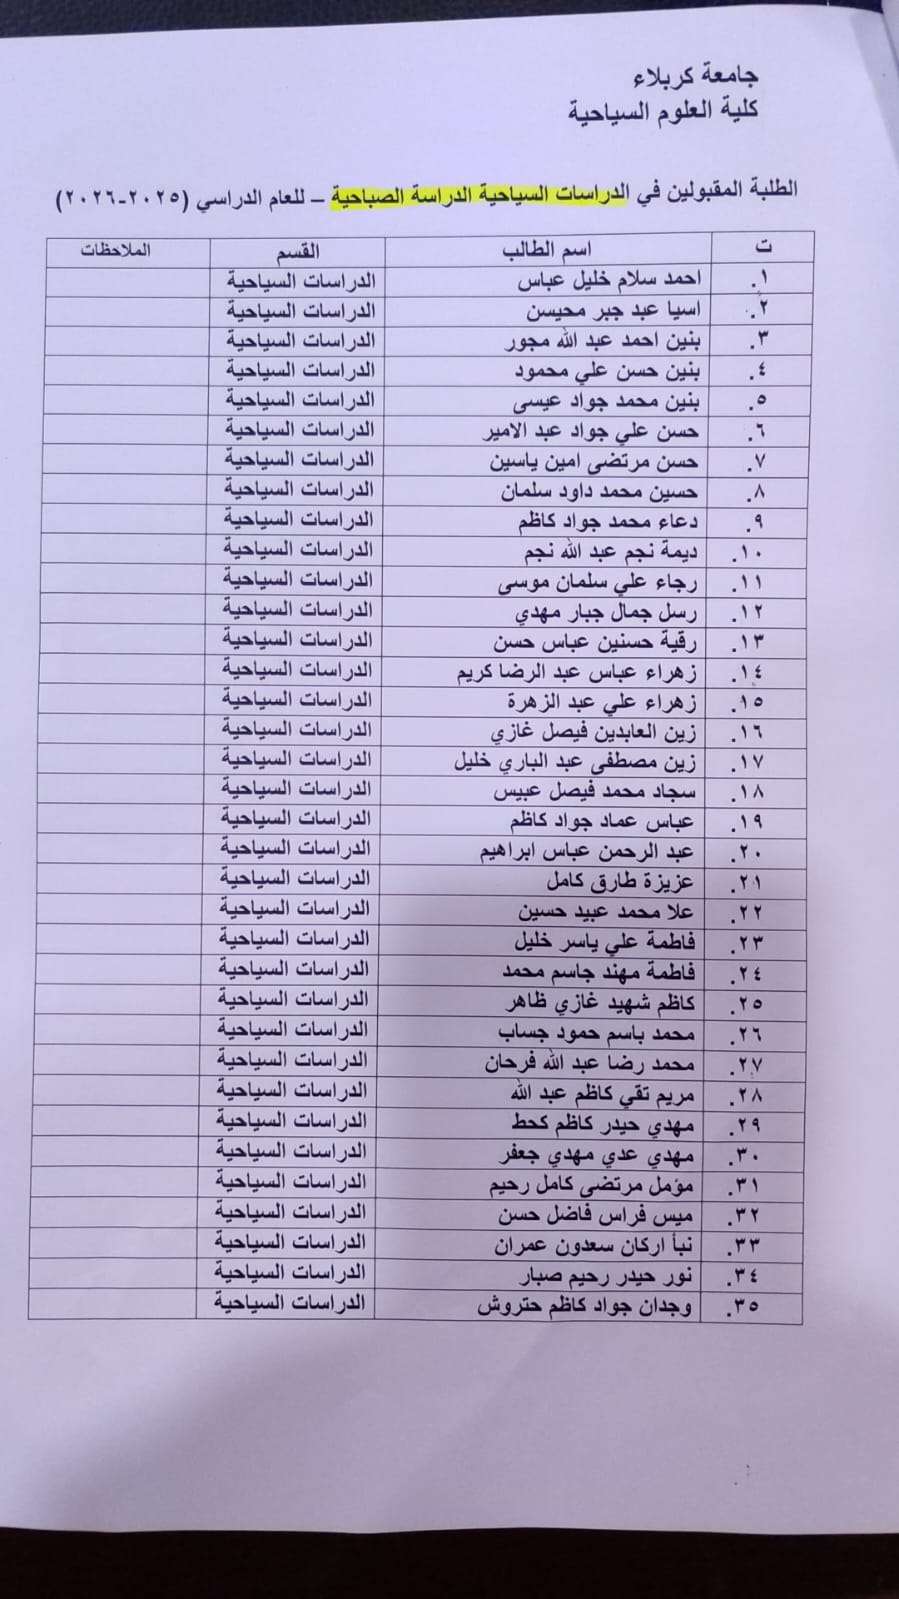 جامعة كربلاء
كلية العلوم السياحية
الطلبة المقبولين في الدراسات السياحية الدراسة الصباحية – للعام الدراسي (٢٠٢٥-٢٠٢٦)
ت اسم الطالب القسم الملاحظات
١. احمد سلام خليل عباس الدراسات السياحية
٢. اسيا عبد جبر محيسن الدراسات السياحية
٣. بنين احمد عبد الله مجور الدراسات السياحية
٤. بنين حسن علي محمود الدراسات السياحية
٥. بنين محمد جواد عيسى الدراسات السياحية
٦. حسن علي جواد عبد الامير الدراسات السياحية
٧. حسن مرتضى امين ياسين الدراسات السياحية
٨. حسين محمد داود سلمان الدراسات السياحية
٩. دعاء محمد جواد كاظم الدراسات السياحية
١٠. ديمة نجم عبد الله نجم الدراسات السياحية
١١. رجاء علي سلمان موسى الدراسات السياحية
١٢. رسل جمال جبار مهدي الدراسات السياحية
١٣. رقية حسنين عباس حسن الدراسات السياحية
١٤. زهراء عباس عبد الرضا كريم الدراسات السياحية
١٥. زهراء علي عبد الزهرة الدراسات السياحية
١٦. زين العابدين فيصل غازي الدراسات السياحية
١٧. زين مصطفى عبد الباري خليل الدراسات السياحية
١٨. سجاد محمد فيصل عبيس الدراسات السياحية
١٩. عباس عماد جواد كاظم الدراسات السياحية
٢٠. عبد الرحمن عباس ابراهيم الدراسات السياحية
٢١. عزيزة طارق كامل الدراسات السياحية
٢٢. علا محمد عبيد حسين الدراسات السياحية
٢٣. فاطمة علي ياسر خليل الدراسات السياحية
٢٤. فاطمة مهند جاسم محمد الدراسات السياحية
٢٥. كاظم شهيد غازي ظاهر الدراسات السياحية
٢٦. محمد باسم حمود جساب الدراسات السياحية
٢٧. محمد رضا عبد الله فرحان الدراسات السياحية
٢٨. مريم تقي كاظم عبد الله الدراسات السياحية
٢٩. مهدي حيدر كاظم كحط الدراسات السياحية
٣٠. مهدي عدي مهدي جعفر الدراسات السياحية
٣١. مؤمل مرتضى كامل رحيم الدراسات السياحية
٣٢. ميس فراس فاضل حسن الدراسات السياحية
٣٣. نبأ اركان سعدون عمران الدراسات السياحية
٣٤. نور حيدر رحيم صبار الدراسات السياحية
٣٥. وجدان جواد كاظم حتروش الدراسات السياحية